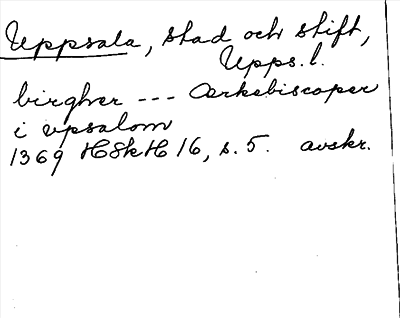 Uppsala, stad och stift,
Upps. l.
birgher --- ærkebiscoper
i vpsalom
1369 HSkH 16, s. 5. avskr.